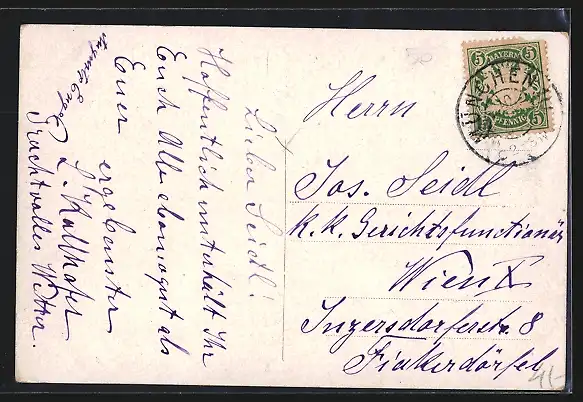 Lieber Seidl!
Hoffentlich unterhält Ihr
Euch Alle ebensogut als
Euer
ergebenster
L. Kalthofer
Prachtvolles Wetter.
Herrn
Jos. Seidl
k. k. Gerichtsfunctionär
Wien X
Inzersdorferstr. 8
Fiakerdörfel
5 BAYERN 5
PFENNIG 5
MÜNCHEN